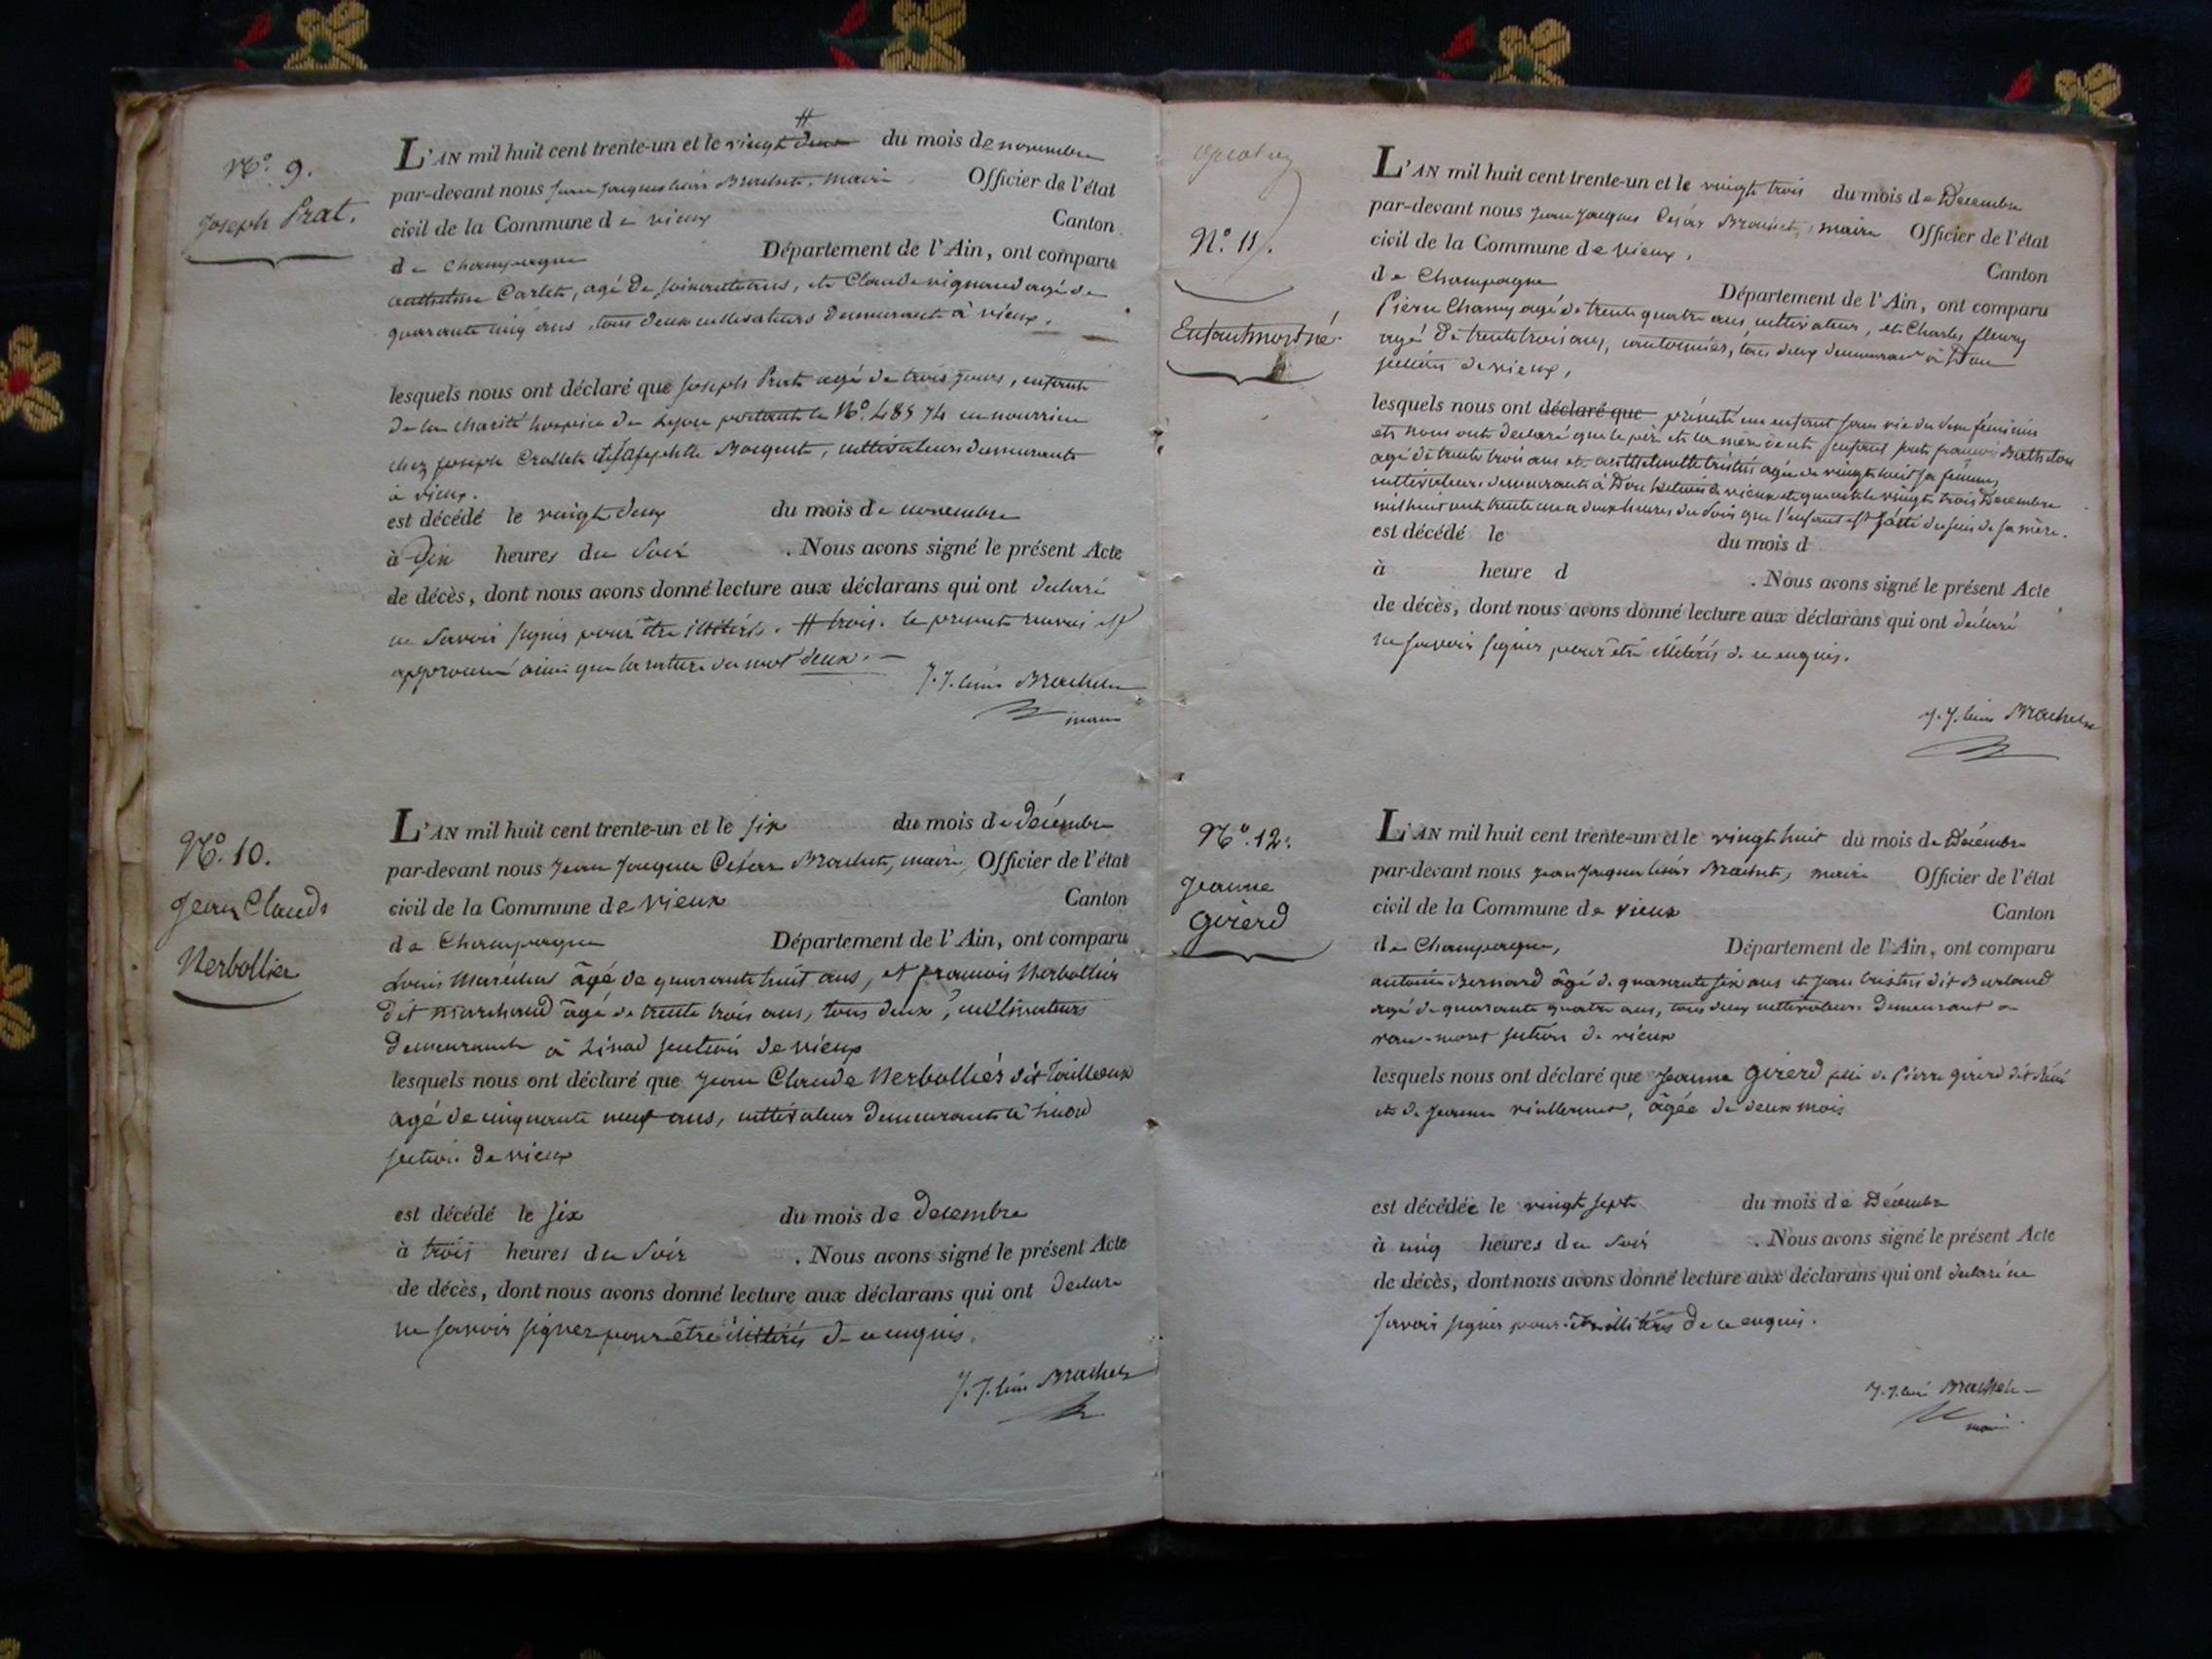 N.º 9.
Joseph Prat.
L'AN mil huit cent trente-un et le vingt deux # du mois de novembre
par-devant nous Jean Jacques César Brachet, maire Officier de l'état
civil de la Commune de vieux Canton
de Champagne Département de l'Ain, ont comparu
anthelme Carlet, agé de soixante ans, et Claude vignaud agé de
quarante cinq ans, tous deux cultivateurs demeurant à vieux.
lesquels nous ont déclaré que Joseph Prat agé de trois jours, enfant
de la charité hospice de Lyon portant le Nº. 485 74 en nourrice
chez Joseph Crollet et Josephtte, cultivateurs demeurants
à vieux.
est décédé le vingt deux du mois de novembre
à dix heures du soir . Nous avons signé le présent Acte
de décès, dont nous avons donné lecture aux déclarans qui ont declaré
ne savoir signer pour être illitérés. # trois. le present renvoi est
approuvé ainsi que la rature du mot deux.
J. J. César Brachet
maire
N.º 10.
Jean Claude
Nerbollier
L'AN mil huit cent trente-un et le six du mois de décembre
par-devant nous Jean Jacques César Brachet, maire, Officier de l'état
civil de la Commune de vieux Canton
de Champagne Département de l'Ain, ont comparu
Louis Maréchal âgé de quarante huit ans, et francois Nerbollier
dit marchand âgé de trente trois ans, tous deux, cultivateurs
demeurants à Linod section de vieux
lesquels nous ont déclaré que Jean Claude Nerbollier dit Tailleux
agé de cinquante neuf ans, cultivateur demeurant à Linod
section de vieux
est décédé le six du mois de decembre
à trois heures du soir . Nous avons signé le présent Acte
de décès, dont nous avons donné lecture aux déclarans qui ont declaré
ne savoir signer pour être illitérés de ce enquis.
J. J. César Brachet
N.º 11.
Enfant mort né.
L'AN mil huit cent trente-un et le vingt trois du mois de Decembre
par-devant nous Jean Jacques César Brachet, maire Officier de l'état
civil de la Commune de vieux, Canton
de Champagne Département de l'Ain, ont comparu
Pierre Chamy agé de trente quatre ans, cultivateur, et Charles fleury
agé de trente trois ans, cantonnier, tous deux demeurant à Don
section de vieux,
lesquels nous ont déclaré que présenté un enfant sans vie du sexe féminin
et nous ont declaré que le père et la mère de cet enfant sont francois Berthelon
agé de trente trois ans et anthelmette tristin agée de vingt huit sa femme,
cultivateurs demeurants à Don section de vieux et que c'est le vingt trois Decembre
mil huit cent trente un a deux heures du soir que l'enfant est sorti du sein de sa mère.
est décédé le du mois d
à heure d . Nous avons signé le présent Acte
de décès, dont nous avons donné lecture aux déclarans qui ont déclaré
ne savoir signer pour être illitérés de ce enquis.
J. J. César Brachet
N.º 12.
Jeanne
Girerd
L'AN mil huit cent trente-un et le vingt huit du mois de Décembre
par-devant nous Jean Jacques César Brachet, maire Officier de l'état
civil de la Commune de vieux Canton
de Champagne, Département de l'Ain, ont comparu
antoine Bernard âgé de quarante six ans et Jean tristin dit Burland
agé de quarante quatre ans, tous deux cultivateurs demeurant a
vau-moret section de vieux
lesquels nous ont déclaré que Jeanne Girerd fille de Pierre Girerd dit
et de Jeanne viullermet, âgée de deux mois
est décédée le vingt sept du mois de Décembre
à cinq heures du soir . Nous avons signé le présent Acte
de décès, dont nous avons donné lecture aux déclarans qui ont declaré ne
savoir signer pour être illitérés de ce enquis.
J. J. César Brachet
maire